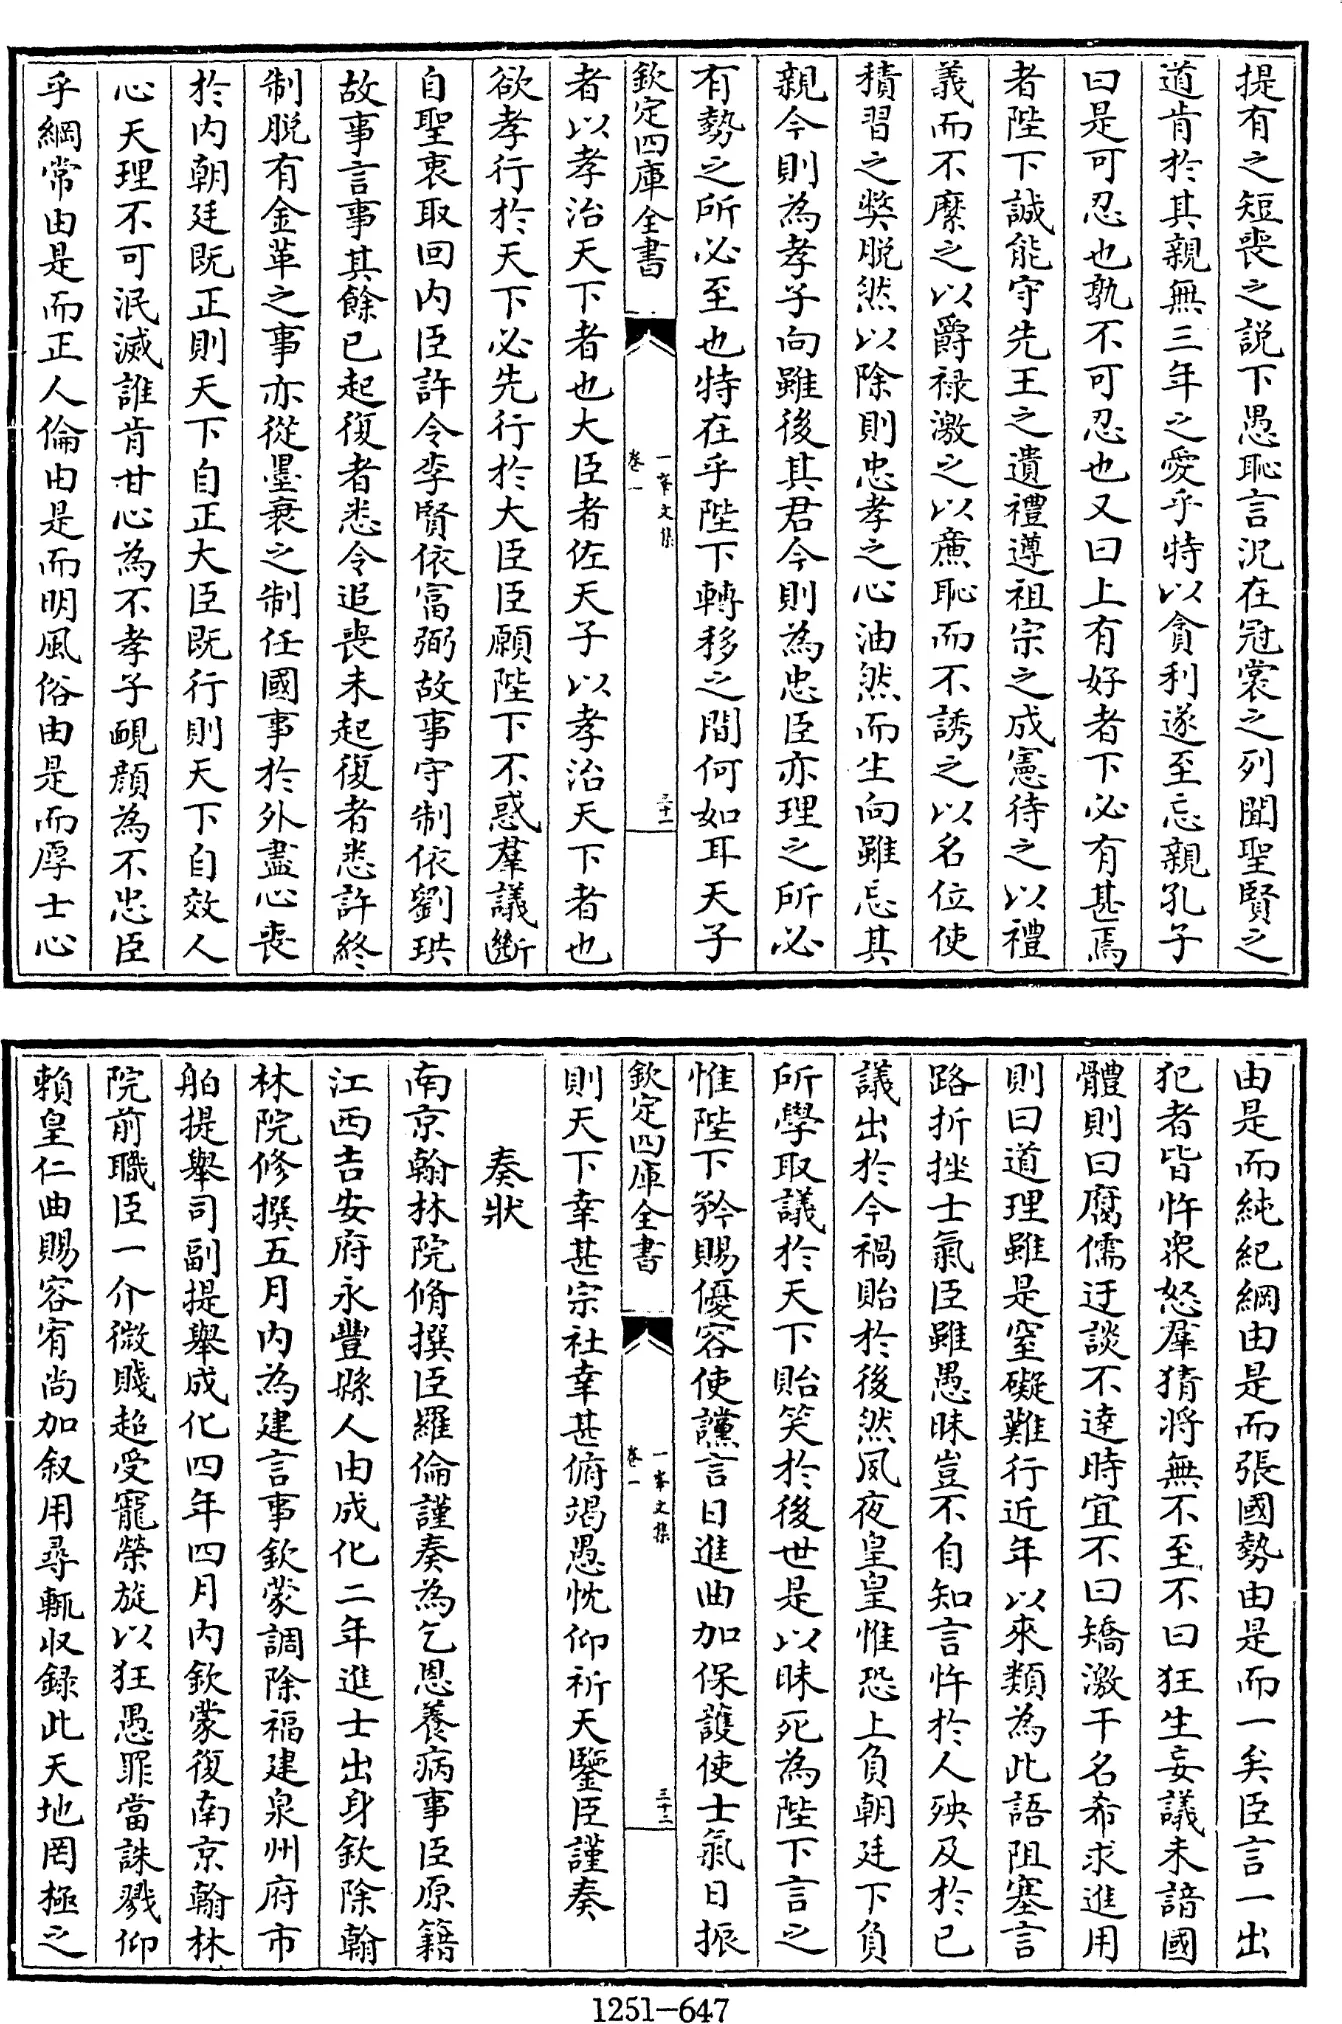 提有之短喪之説下愚恥言況在冠裳之列聞聖賢之
道肯於其親無三年之愛乎特以貪利遂至忘親孔子
曰是可忍也孰不可忍也又曰上有好者下必有甚焉
者陛下誠能守先王之遺禮遵祖宗之成憲待之以禮
義而不縻之以爵禄激之以亷恥而不誘之以名位使
積習之獘脱然以除則忠孝之心油然而生向雖忘其
親今則為孝子向雖後其君今則為忠臣亦理之所必
有勢之所必至也特在乎陛下轉移之間何如耳天子
欽定四庫全書
一峯文集
卷一
三十一
者以孝治天下者也大臣者佐天子以孝治天下者也
欲孝行於天下必先行於大臣臣願陛下不惑羣議斷
自聖衷取回内臣許令李賢依富弼故事守制依劉珙
故事言事其餘已起復者悉令追喪未起復者悉許終
制脱有金革之事亦從墨衰之制任國事於外盡心喪
於内朝廷既正則天下自正大臣既行則天下自效人
心天理不可泯滅誰肯甘心為不孝子靦顔為不忠臣
乎綱常由是而正人倫由是而明風俗由是而厚士心
由是而純紀綱由是而張國勢由是而一矣臣言一出
犯者皆忤衆怒羣猜将無不至不曰狂生妄議未諳國
體則曰腐儒迂談不達時宜不曰矯激干名希求進用
則曰道理雖是窒礙難行近年以來類為此語阻塞言
路折挫士氣臣雖愚昧豈不自知言忤於人殃及於已
議出於今禍貽於後然夙夜皇皇惟恐上負朝廷下負
所學取議於天下貽笑於後世是以昧死為陛下言之
惟陛下矜賜優容使讜言日進曲加保護使士氣日振
欽定四庫全書
一峯文集
卷一
三十二
則天下幸甚宗社幸甚俯竭愚忱仰祈天鑒臣謹奏
奏狀
南京翰林院脩撰臣羅倫謹奏為乞恩養病事臣原籍
江西吉安府永豐縣人由成化二年進士出身欽除翰
林院修撰五月内為建言事欽蒙調除福建泉州府市
舶提舉司副提舉成化四年四月内欽蒙復南京翰林
院前職臣一介微賤超受寵榮旋以狂愚罪當誅戮仰
賴皇仁曲賜容宥尚加叙用尋輒收錄此天地罔極之
1251-647